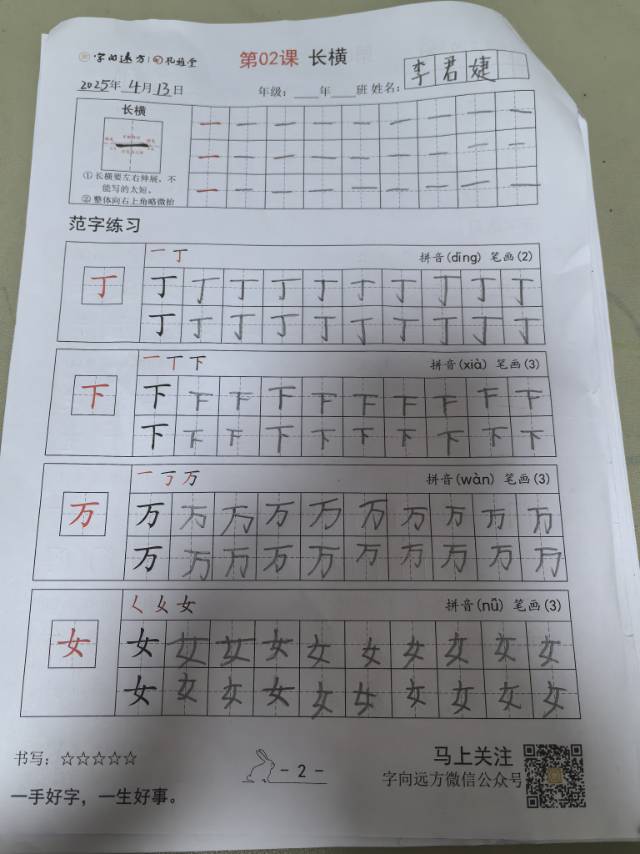 字向远方 孔雅堂
第02课 长横
2025年 4月 13日 年级：____年____班 姓名：李君婕
长横
一 一 一 一 一 一 一 一 一
① 长横要左右伸展，不
能写的太短。
② 整体向右上角略微抬
一 一 一 一 一 一 一 一 一
一 一 一 一 一 一 一 一 一
范字练习
一 丁 拼音(dīng) 笔画(2)
丁 丁 丁 丁 丁 丁 丁 丁 丁 丁 丁
丁 丁 丁 丁 丁 丁 丁 丁 丁 丁
一 丅 下 拼音(xià) 笔画(3)
下 下 下 下 下 下 下 下 下 下 下
下 下 下 下 下 下 下 下 下 下
一 丆 万 拼音(wàn) 笔画(3)
万 万 万 万 万 万 万 万 万 万 万
万 万 万 万 万 万 万 万 万 万
く 女 女 拼音(nǚ) 笔画(3)
女 女 女 女 女 女 女 女 女 女 女
女 女 女 女 女 女 女 女 女 女
书写：☆☆☆☆☆
一手好字，一生好事。
- 2 -
马上关注
字向远方微信公众号